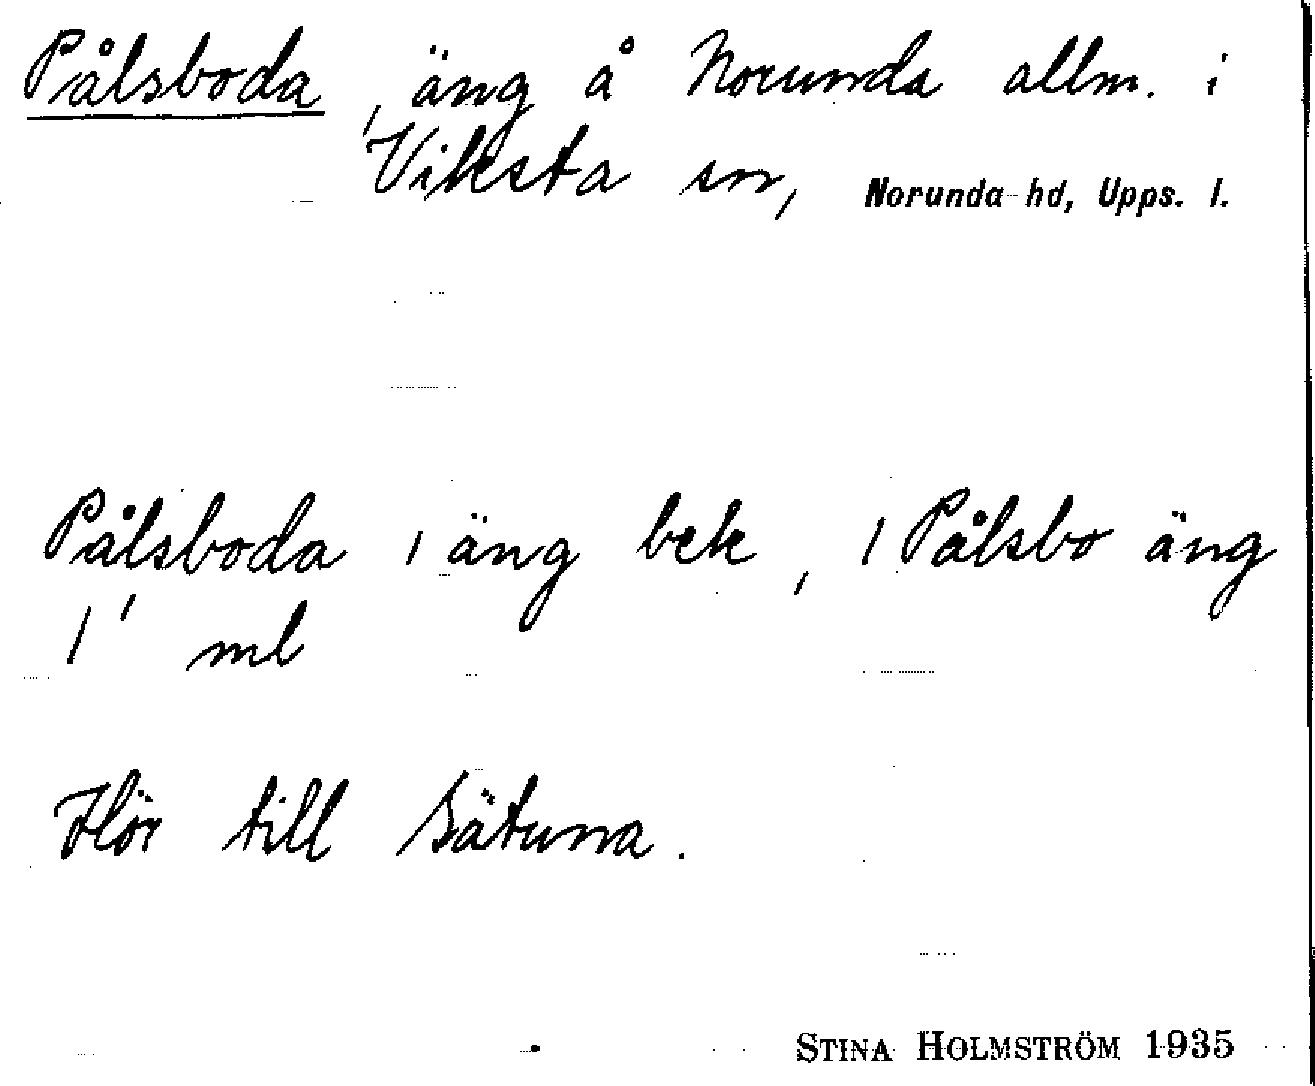 Pålsboda, äng å Norunda allm. i
Viksta sn, Norunda hd, Upps. l.
Pålsboda, äng bek, / Pålsbo äng
/' ml
Hör till Sätuna.
STINA HOLMSTRÖM 1935